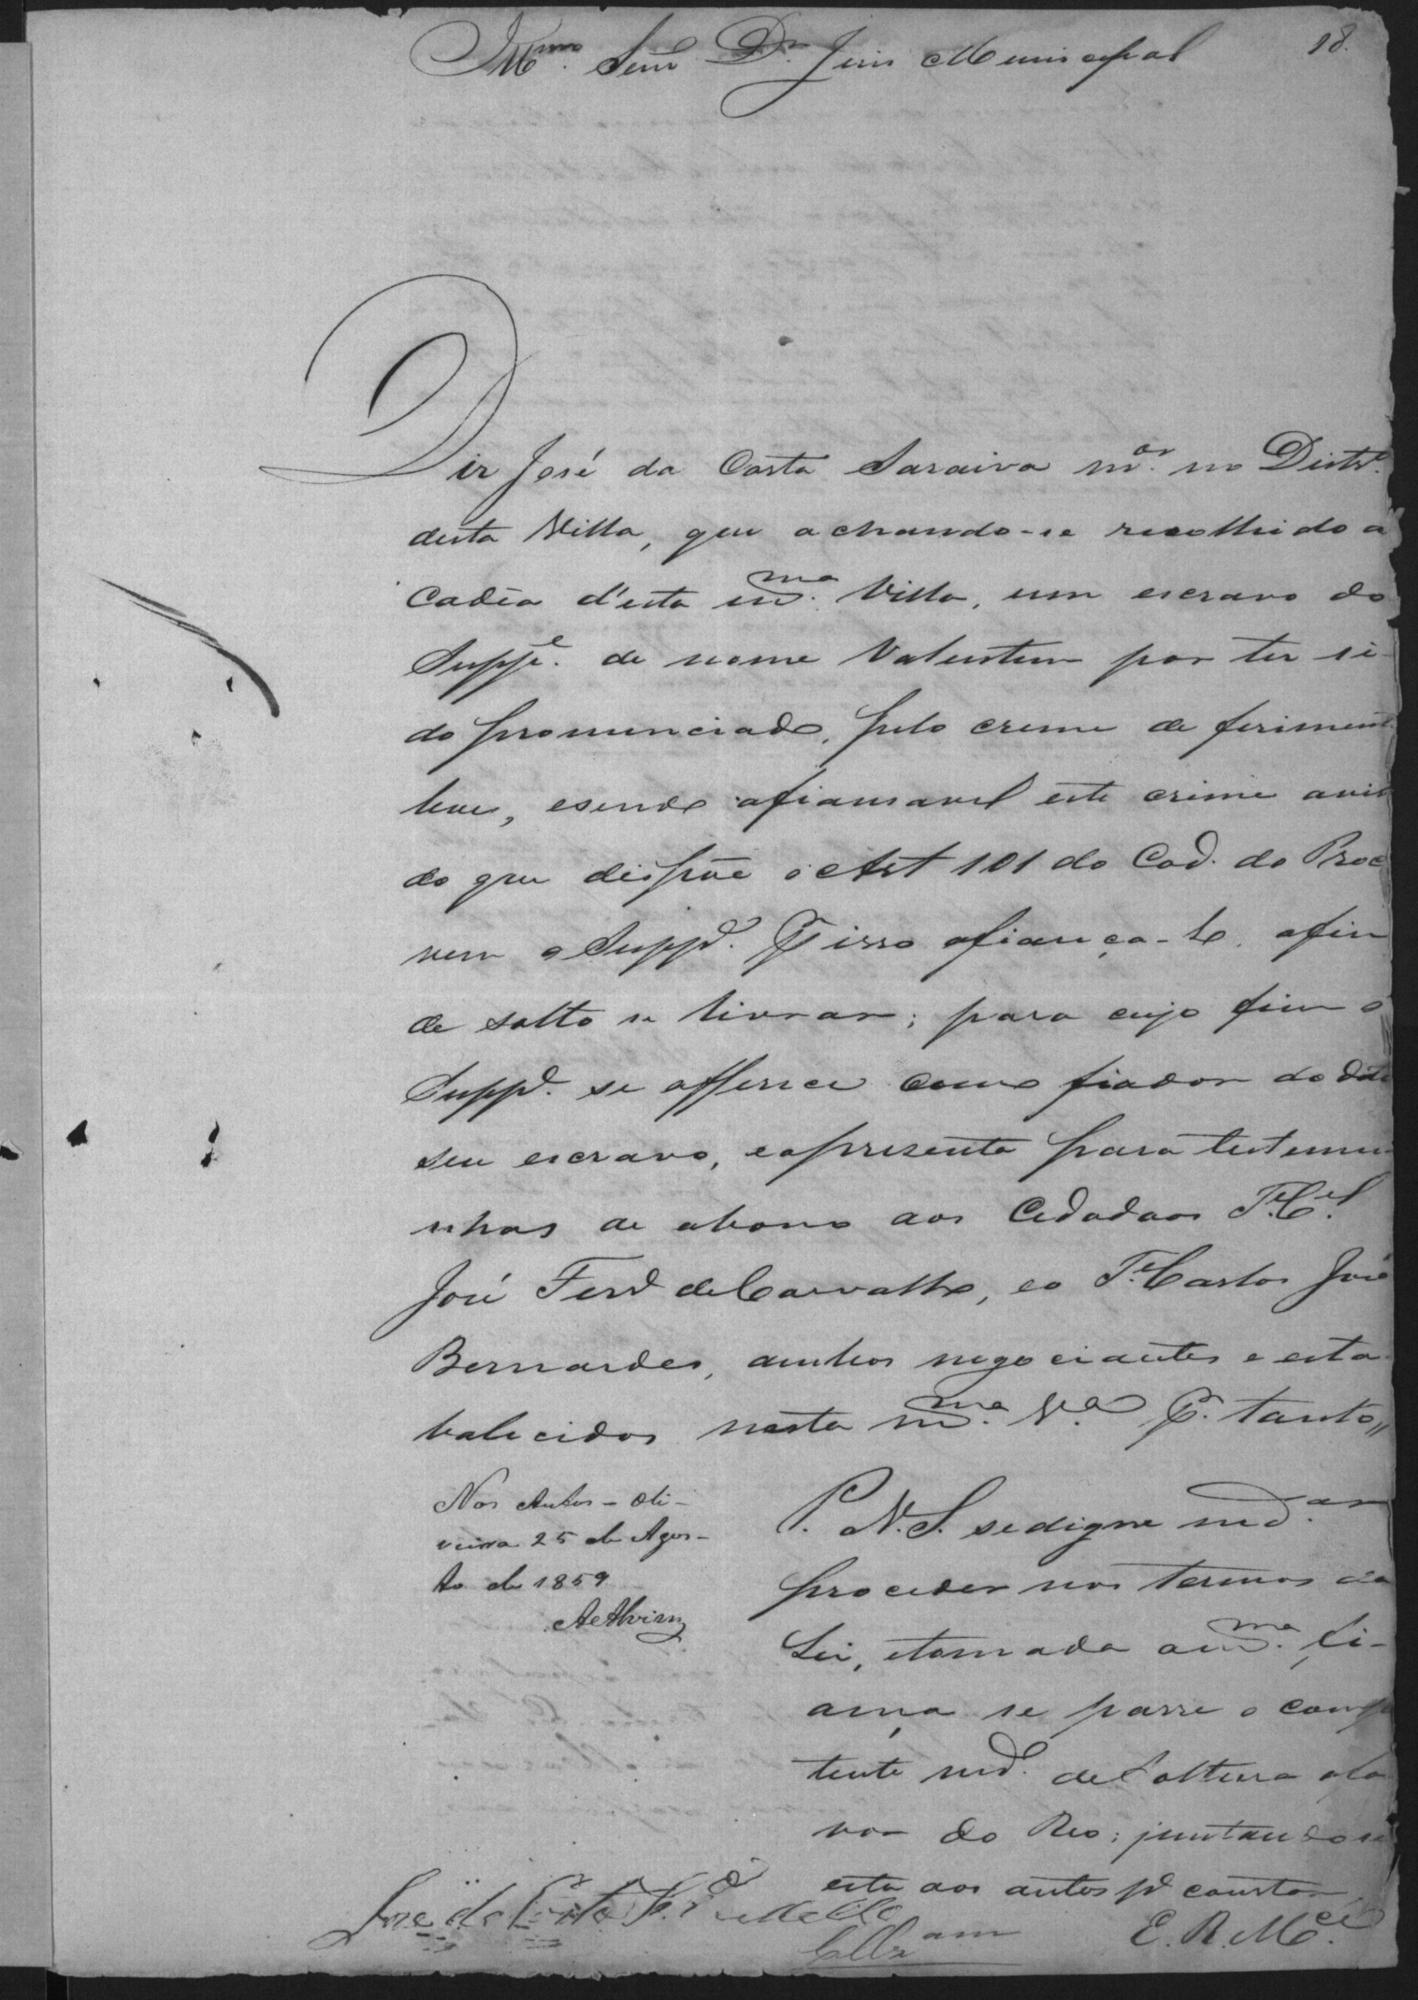 18.
Illmo. Senr. Dr. Juis Municipal
Diz José da Costa Saraiva mor. no Distro.
desta Villa, que achando-se recolhido a
Cadêa d'esta mma. Villa, um escravo do
Suppe. de nome Valentim por ter si-
do pronunciado, pelo crime de feriment
leve, esendo afiansavel este crime avis
do que dispõe o Art 101 do Cod. do Proc
vem o Suppe. Pr isso afiança-lo, afim
de solto se livrar; para cujo fim o
Suppe. se offerece como fiador do dito
seu escravo, eapresenta para testemu
nhas de abono aos Cidadaos Te. Cel.
José Ferra de Carvalho, eo Te. Carlos José
Bernardes, ambos negociantes e esta-
balecidos nesta mma. Va. Pr. tanto,,
P. V. S. sedigne mdar.
proceder nos termos da
Lei, etomada a mma. fi-
ança se passe o compe
tente mdo. de Soltura afa
vor do Reo; juntando se
esta aos autos pa constar
E. R. Mce.
Nos Autos - Oli-
veira 25 de Agos-
to de 1859
José da Costa